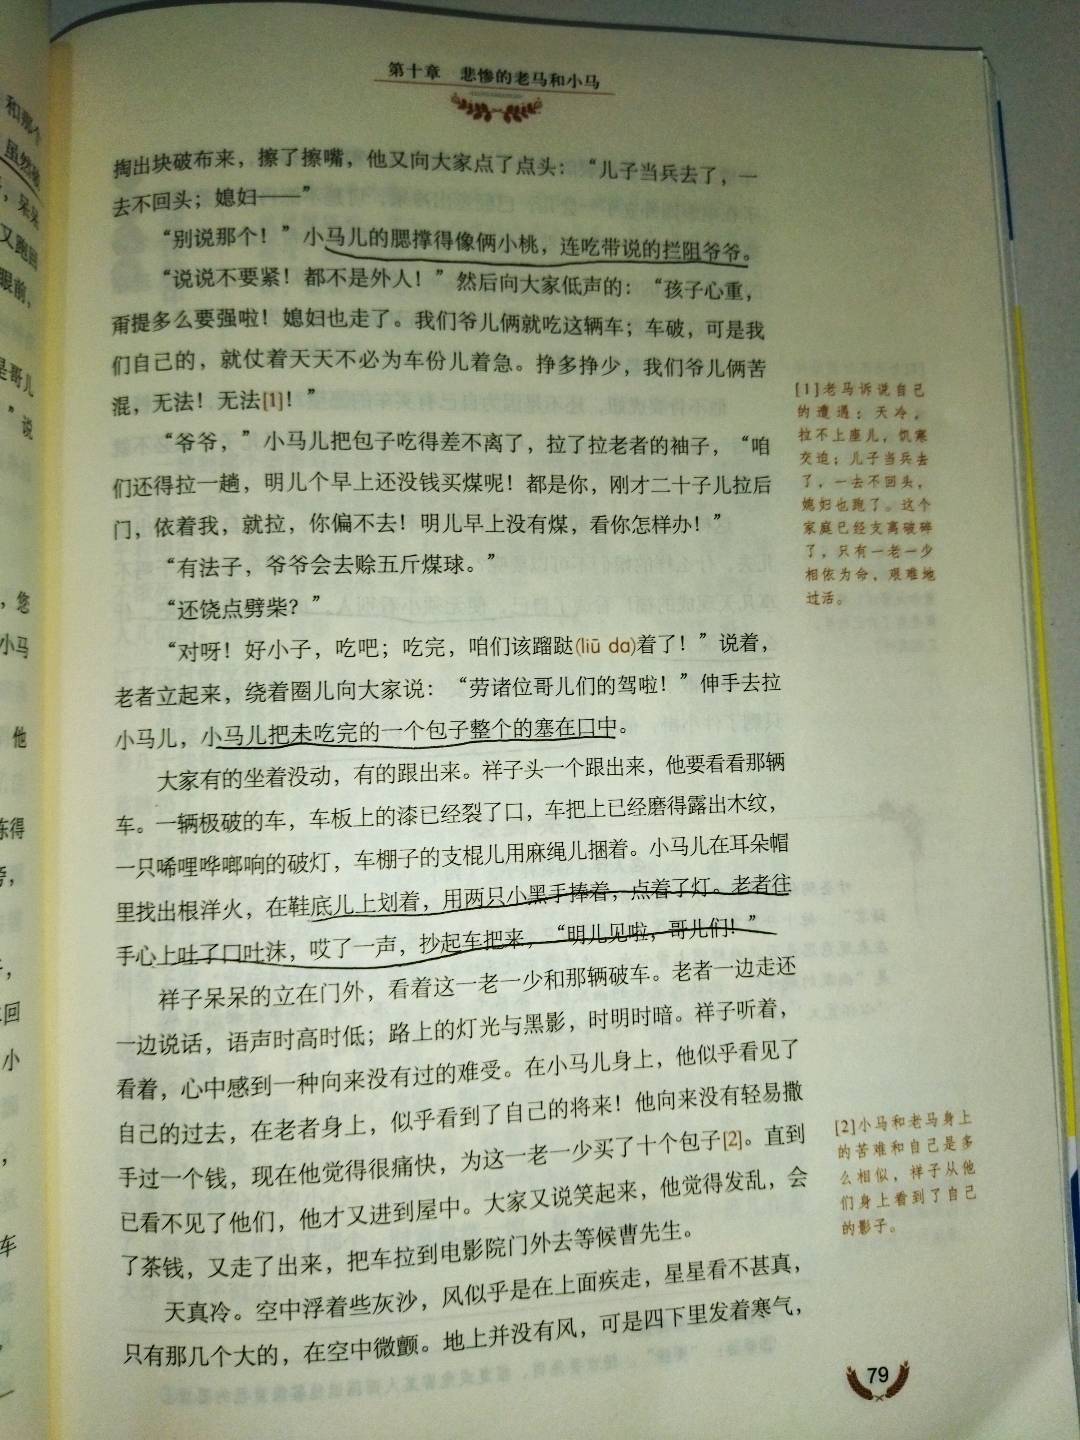 第十章 悲惨的老马和小马
掏出块破布来，擦了擦嘴，他又向大家点了点头：“儿子当兵去了，一
去不回头；媳妇——”
“别说那个！”小马儿的腮撑得像俩小桃，连吃带说的拦阻爷爷。
“说说不要紧！都不是外人！”然后向大家低声的：“孩子心重，
甭提多么要强啦！媳妇也走了。我们爷儿俩就吃这辆车；车破，可是我
们自己的，就仗着天天不必为车份儿着急。挣多挣少，我们爷儿俩苦
混，无法！无法[1]！”
“爷爷，”小马儿把包子吃得差不离了，拉了拉老者的袖子，“咱
们还得拉一趟，明儿个早上还没钱买煤呢！都是你，刚才二十子儿拉后
门，依着我，就拉，你偏不去！明儿早上没有煤，看你怎样办！”
“有法子，爷爷会去赊五斤煤球。”
“还饶点劈柴？”
“对呀！好小子，吃吧；吃完，咱们该蹓跶(liū da)着了！”说着，
老者立起来，绕着圈儿向大家说：“劳诸位哥儿们的驾啦！”伸手去拉
小马儿，小马儿把未吃完的一个包子整个的塞在口中。
大家有的坐着没动，有的跟出来。祥子头一个跟出来，他要看看那辆
车。一辆极破的车，车板上的漆已经裂了口，车把上已经磨得露出木纹，
一只唏哩哗啷响的破灯，车棚子的支棍儿用麻绳儿捆着。小马儿在耳朵帽
里找出根洋火，在鞋底儿上划着，用两只小黑手捧着，点着了灯。老者往
手心上吐了口吐沫，哎了一声，抄起车把来，“明儿见啦，哥儿们！”
祥子呆呆的立在门外，看着这一老一少和那辆破车。老者一边走还
一边说话，语声时高时低；路上的灯光与黑影，时明时暗。祥子听着，
看着，心中感到一种向来没有过的难受。在小马儿身上，他似乎看见了
自己的过去，在老者身上，似乎看到了自己的将来！他向来没有轻易撒
手过一个钱，现在他觉得很痛快，为这一老一少买了十个包子[2]。直到
已看不见了他们，他才又进到屋中。大家又说笑起来，他觉得发乱，会
了茶钱，又走了出来，把车拉到电影院门外去等候曹先生。
天真冷。空中浮着些灰沙，风似乎是在上面疾走，星星看不甚真，
只有那几个大的，在空中微颤。地上并没有风，可是四下里发着寒气，
[1]老马诉说自己
的遭遇：天冷，
拉不上座儿，饥寒
交迫；儿子当兵去
了，一去不回头，
媳妇也跑了。这个
家庭已经支离破碎
了，只有一老一少
相依为命，艰难地
过活。
[2]小马和老马身上
的苦难和自己是多
么相似，祥子从他
们身上看到了自己
的影子。
79